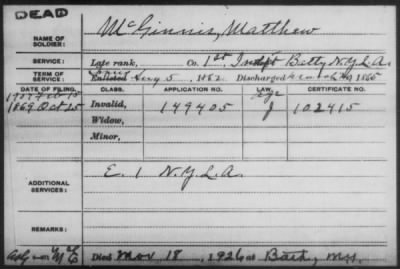 DEAD
NAME OF SOLDIER: McGinnis, Matthew
SERVICE: Late rank, Co. 1st Indpt Batty N.Y.L.A.
TERM OF SERVICE: Enlisted Aug 5, 1862. Discharged 1865
DATE OF FILING. CLASS. APPLICATION NO. LAW. CERTIFICATE NO.
1907 Feb 15 Age
1869 Oct 15 Invalid, 149405 J 102415
Widow,
Minor,
ADDITIONAL SERVICES: E. 1 N.Y.L.A.
REMARKS:
Died Nov 18, 1926 at Bath, N.Y.